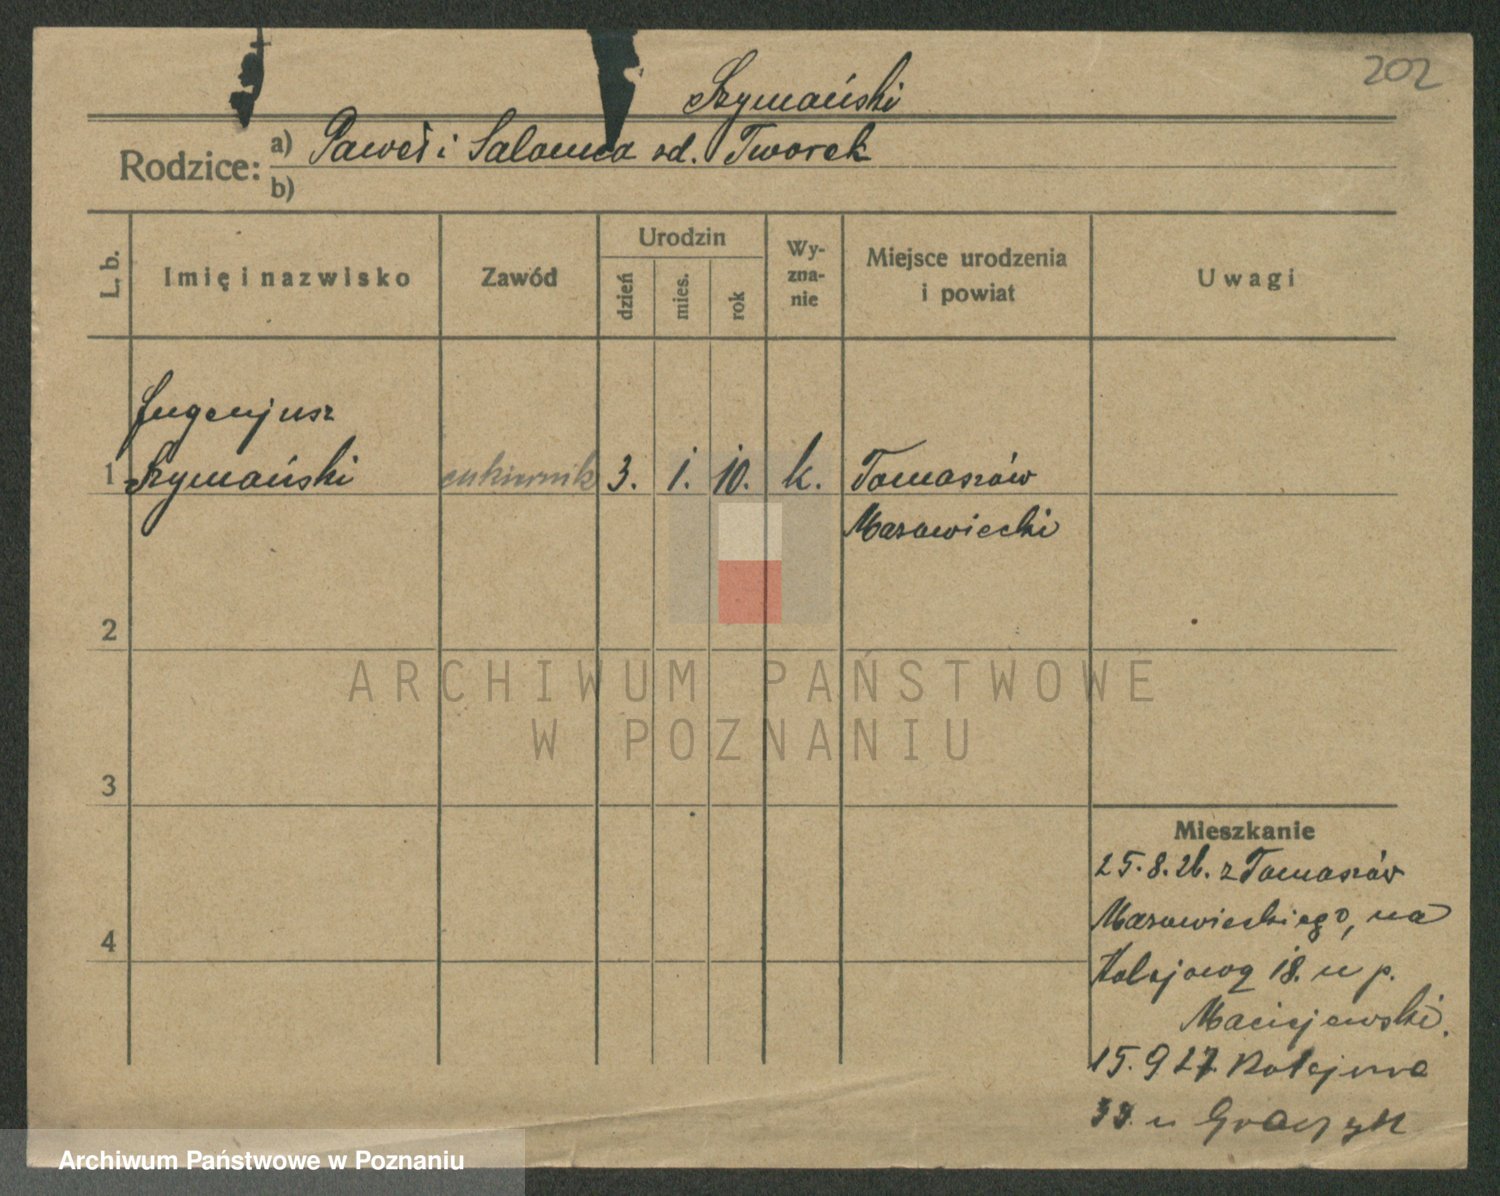 202
Szymański
Rodzice: a) Paweł i Salomea od. Tworek
b)
L. b.
Imię i nazwisko
Zawód
Urodzin
dzień
mies.
rok
Wy-
zna-
nie
Miejsce urodzenia
i powiat
Uwagi
Eugenjusz
1 Szymański cukiernik 3. 1. 10. k. Tomaszów
Mazowiecki
2
ARCHIWUM PAŃSTWOWE
W POZNANIU
3
Mieszkanie
25.8.26. z Tomaszów
Mazowieckiego, na
4
Kolejową 18. u p.
Maciejewski.
15.9 27. Kolejowa
33. u Graczyk
Archiwum Państwowe w Poznaniu